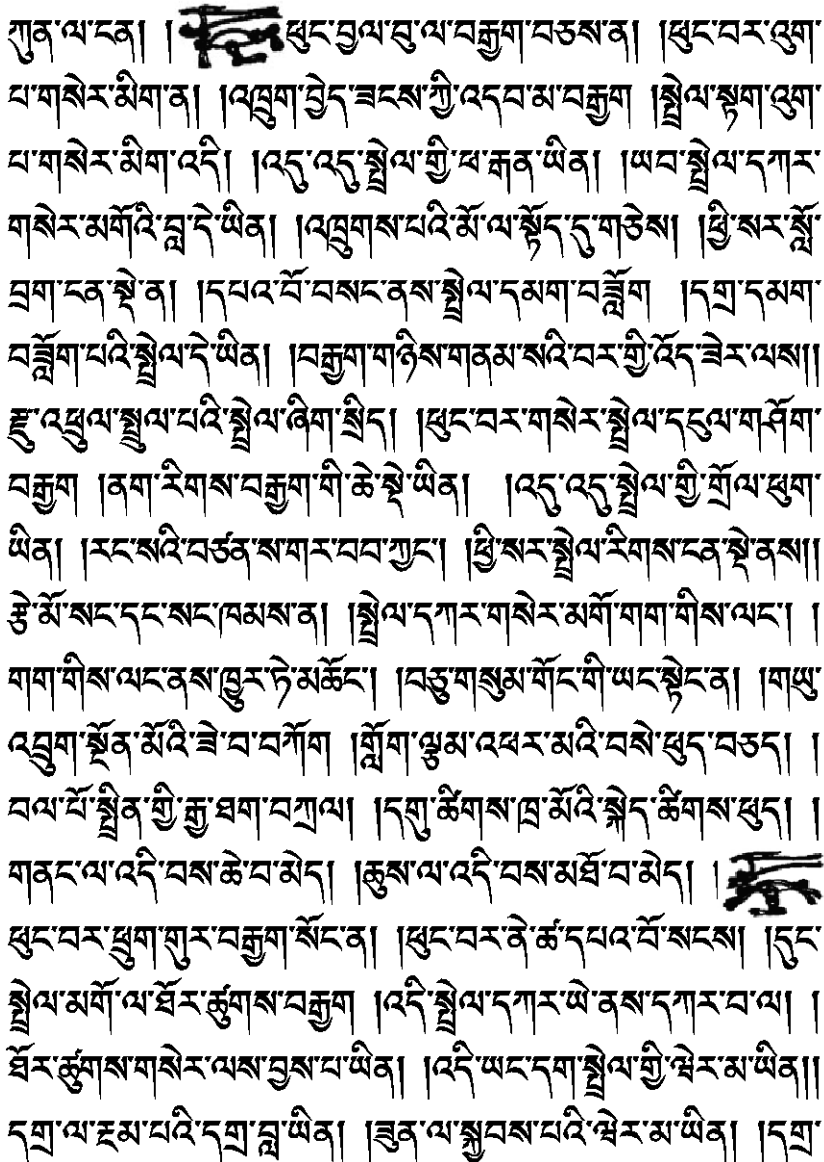 ཀུན་ལ་ངན། ། ཕུང་བྱལ་བུ་ལ་བརྒྱག་བཅས་ན། །ཕུང་བར་འུག་
པ་གསེར་མིག་ན། །འཁྲུག་བྱེད་ཟངས་ཀྱི་འདབ་མ་བརྒྱག །སྤྲེལ་སྟག་འུག་
པ་གསེར་མིག་འདི། །འདུ་འདུ་སྤྲེལ་གྱི་ཕ་རྒན་ཡིན། །ཡབ་སྤྲེལ་དཀར་
གསེར་མགོའི་བླ་དེ་ཡིན། །འཁྲུགས་པའི་མོ་ལ་སྟོད་དུ་གཅེས། །ཕྱི་སར་སློ་
བྲག་ངན་སྡེ་ན། །དཔའ་བོ་བསང་ནས་སྤྲེལ་དམག་བཟློག །དགྲ་དམག་
བཟློག་པའི་སྤྲེལ་དེ་ཡིན། །བརྒྱག་གཉིས་གནམ་སའི་བར་གྱི་འོད་ཟེར་ལས།།
རྫུ་འཕྲུལ་སྤྲུལ་པའི་སྤྲེལ་ཞིག་སྲིད། །ཕུང་བར་གསེར་སྤྲེལ་དངུལ་གཤོག་
བརྒྱག །ནག་རིགས་བརྒྱག་གི་ཆེ་སྡེ་ཡིན། །འདུ་འདུ་སྤྲེལ་གྱི་གྲོལ་ཕུག་
ཡིན། །རང་སའི་བཙན་ས་གར་བབ་ཀྱང་། །ཕྱི་སར་སྤྲེལ་རིགས་ངན་སྡེ་ནས།།
རྩེ་མོ་སང་དང་སང་ཁམས་ན། །སྤྲེལ་དཀར་གསེར་མགོ་གག་གིས་ལང་། །
གག་གིས་ལང་ནས་ཁྱུར་ཏེ་མཆོང་། །བཅུ་གསུམ་གོང་གི་ཡང་སྟེང་ན། །གཡུ་
འབྲུག་སྔོན་མོའི་ཟེ་བ་བཀོག །གློག་ལྕམ་འཕར་མའི་བསེ་ཕུད་བཅད། །
བལ་པོ་སྤྲིན་གྱི་རྒྱ་ཐག་བཀྲལ། །དགུ་ཚིགས་ཁྲ་མོའི་སྐེད་ཚིགས་ཕུད། །
གནང་ལ་འདི་བས་ཆེ་བ་མེད། །ཆུས་ལ་འདི་བས་མཐོ་བ་མེད། །
ཕུང་བར་ཕྲུག་གུར་བརྒྱག་སོང་ན། །ཕུང་བར་ནེ་ཚ་དཔའ་བོ་སངས། །དུང་
སྤྲེལ་མགོ་ལ་ཐོར་ཚུགས་བརྒྱག །འདི་སྤྲེལ་དཀར་ཡེ་ནས་དཀར་བ་ལ། །
ཐོར་ཚུགས་གསེར་ལས་བྱས་པ་ཡིན། །འདི་ཡང་དག་སྤྲེལ་གྱི་ཝེར་མ་ཡིན།།
དགྲ་ལ་རྔམ་པའི་དགྲ་བླ་ཡིན། །ཟུན་ལ་སྐྱབས་པའི་ཝེར་མ་ཡིན། །དགྲ་